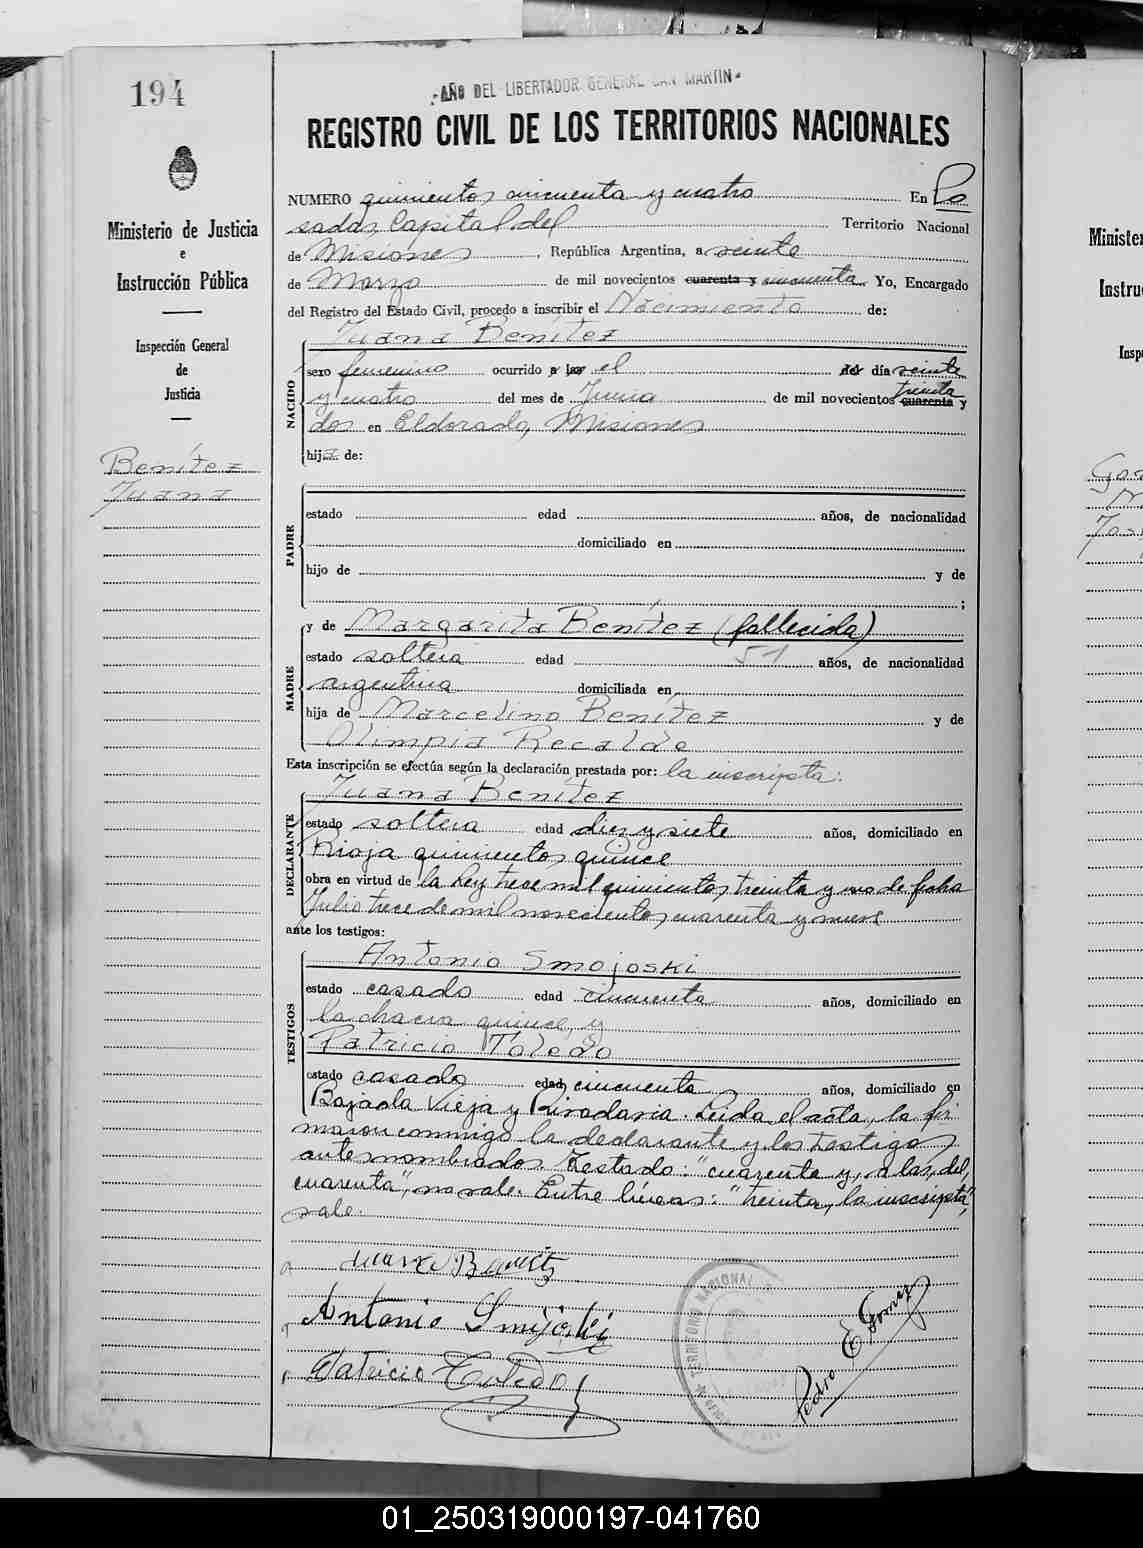 194
AÑO DEL LIBERTADOR GENERAL SAN MARTIN
REGISTRO CIVIL DE LOS TERRITORIOS NACIONALES
Ministerio de Justicia
e
Instrucción Pública
Inspección General
de
Justicia
Benítez
Juana
NUMERO quinientos cincuenta y cuatro En Po
sadas, Capital del Territorio Nacional
de Misiones, República Argentina, a veinte
de Marzo de mil novecientos cuarenta y cincuenta Yo, Encargado
del Registro del Estado Civil, procedo a inscribir el Nacimiento de:
Juana Benítez
NACIDO
sexo femenino ocurrido a las el del día veinte
y cuatro del mes de Junio de mil novecientos cuarenta treinta y
dos en Eldorado, Misiones
hija de:
PADRE
estado edad años, de nacionalidad
domiciliado en
hijo de y de
;
MADRE
y de Margarita Benítez (fallecida)
estado soltera edad 51 años, de nacionalidad
argentina domiciliada en
hija de Marcelino Benítez y de
Olimpia Recalde
Esta inscripción se efectúa según la declaración prestada por: la inscripta:
Juana Benítez
DECLARANTE
estado soltera edad diez y siete años, domiciliado en
Rioja quinientos quince
obra en virtud de la Ley trece mil quinientos treinta y uno de fecha
Julio trece de mil novecientos cuarenta y nueve
ante los testigos:
Antonio Smojoski
TESTIGOS
estado casado edad cincuenta años, domiciliado en
la chacra quince, y
Patricio Toledo
estado casado edad cincuenta años, domiciliado en
Bajada Vieja y Rivadavia. Leída el acta, la fir
maron conmigo la declarante y los testigos
antes nombrados. Testado: "cuarenta y, a las, del,
cuarenta", no vale. Entre líneas: "treinta, la inscripta",
vale.
Juana Benitez
Antonio Smijoski
Patricio Toledo
Pedro E Gomez
TERRITORIO NACIONAL
Minister
Instru
Inspe
01_250319000197-041760